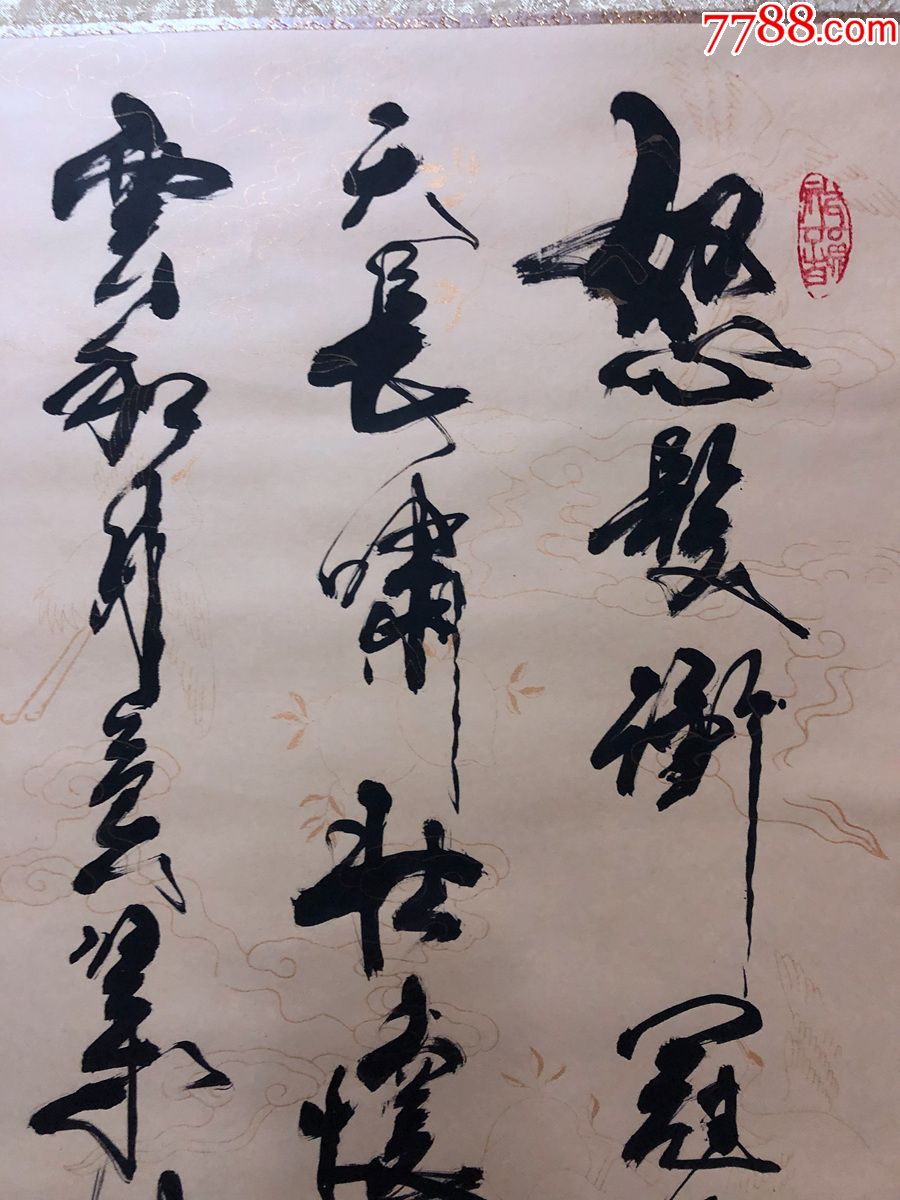 7788.com
怒髮衝冠
天長嘯壯懷
雲和月莫等